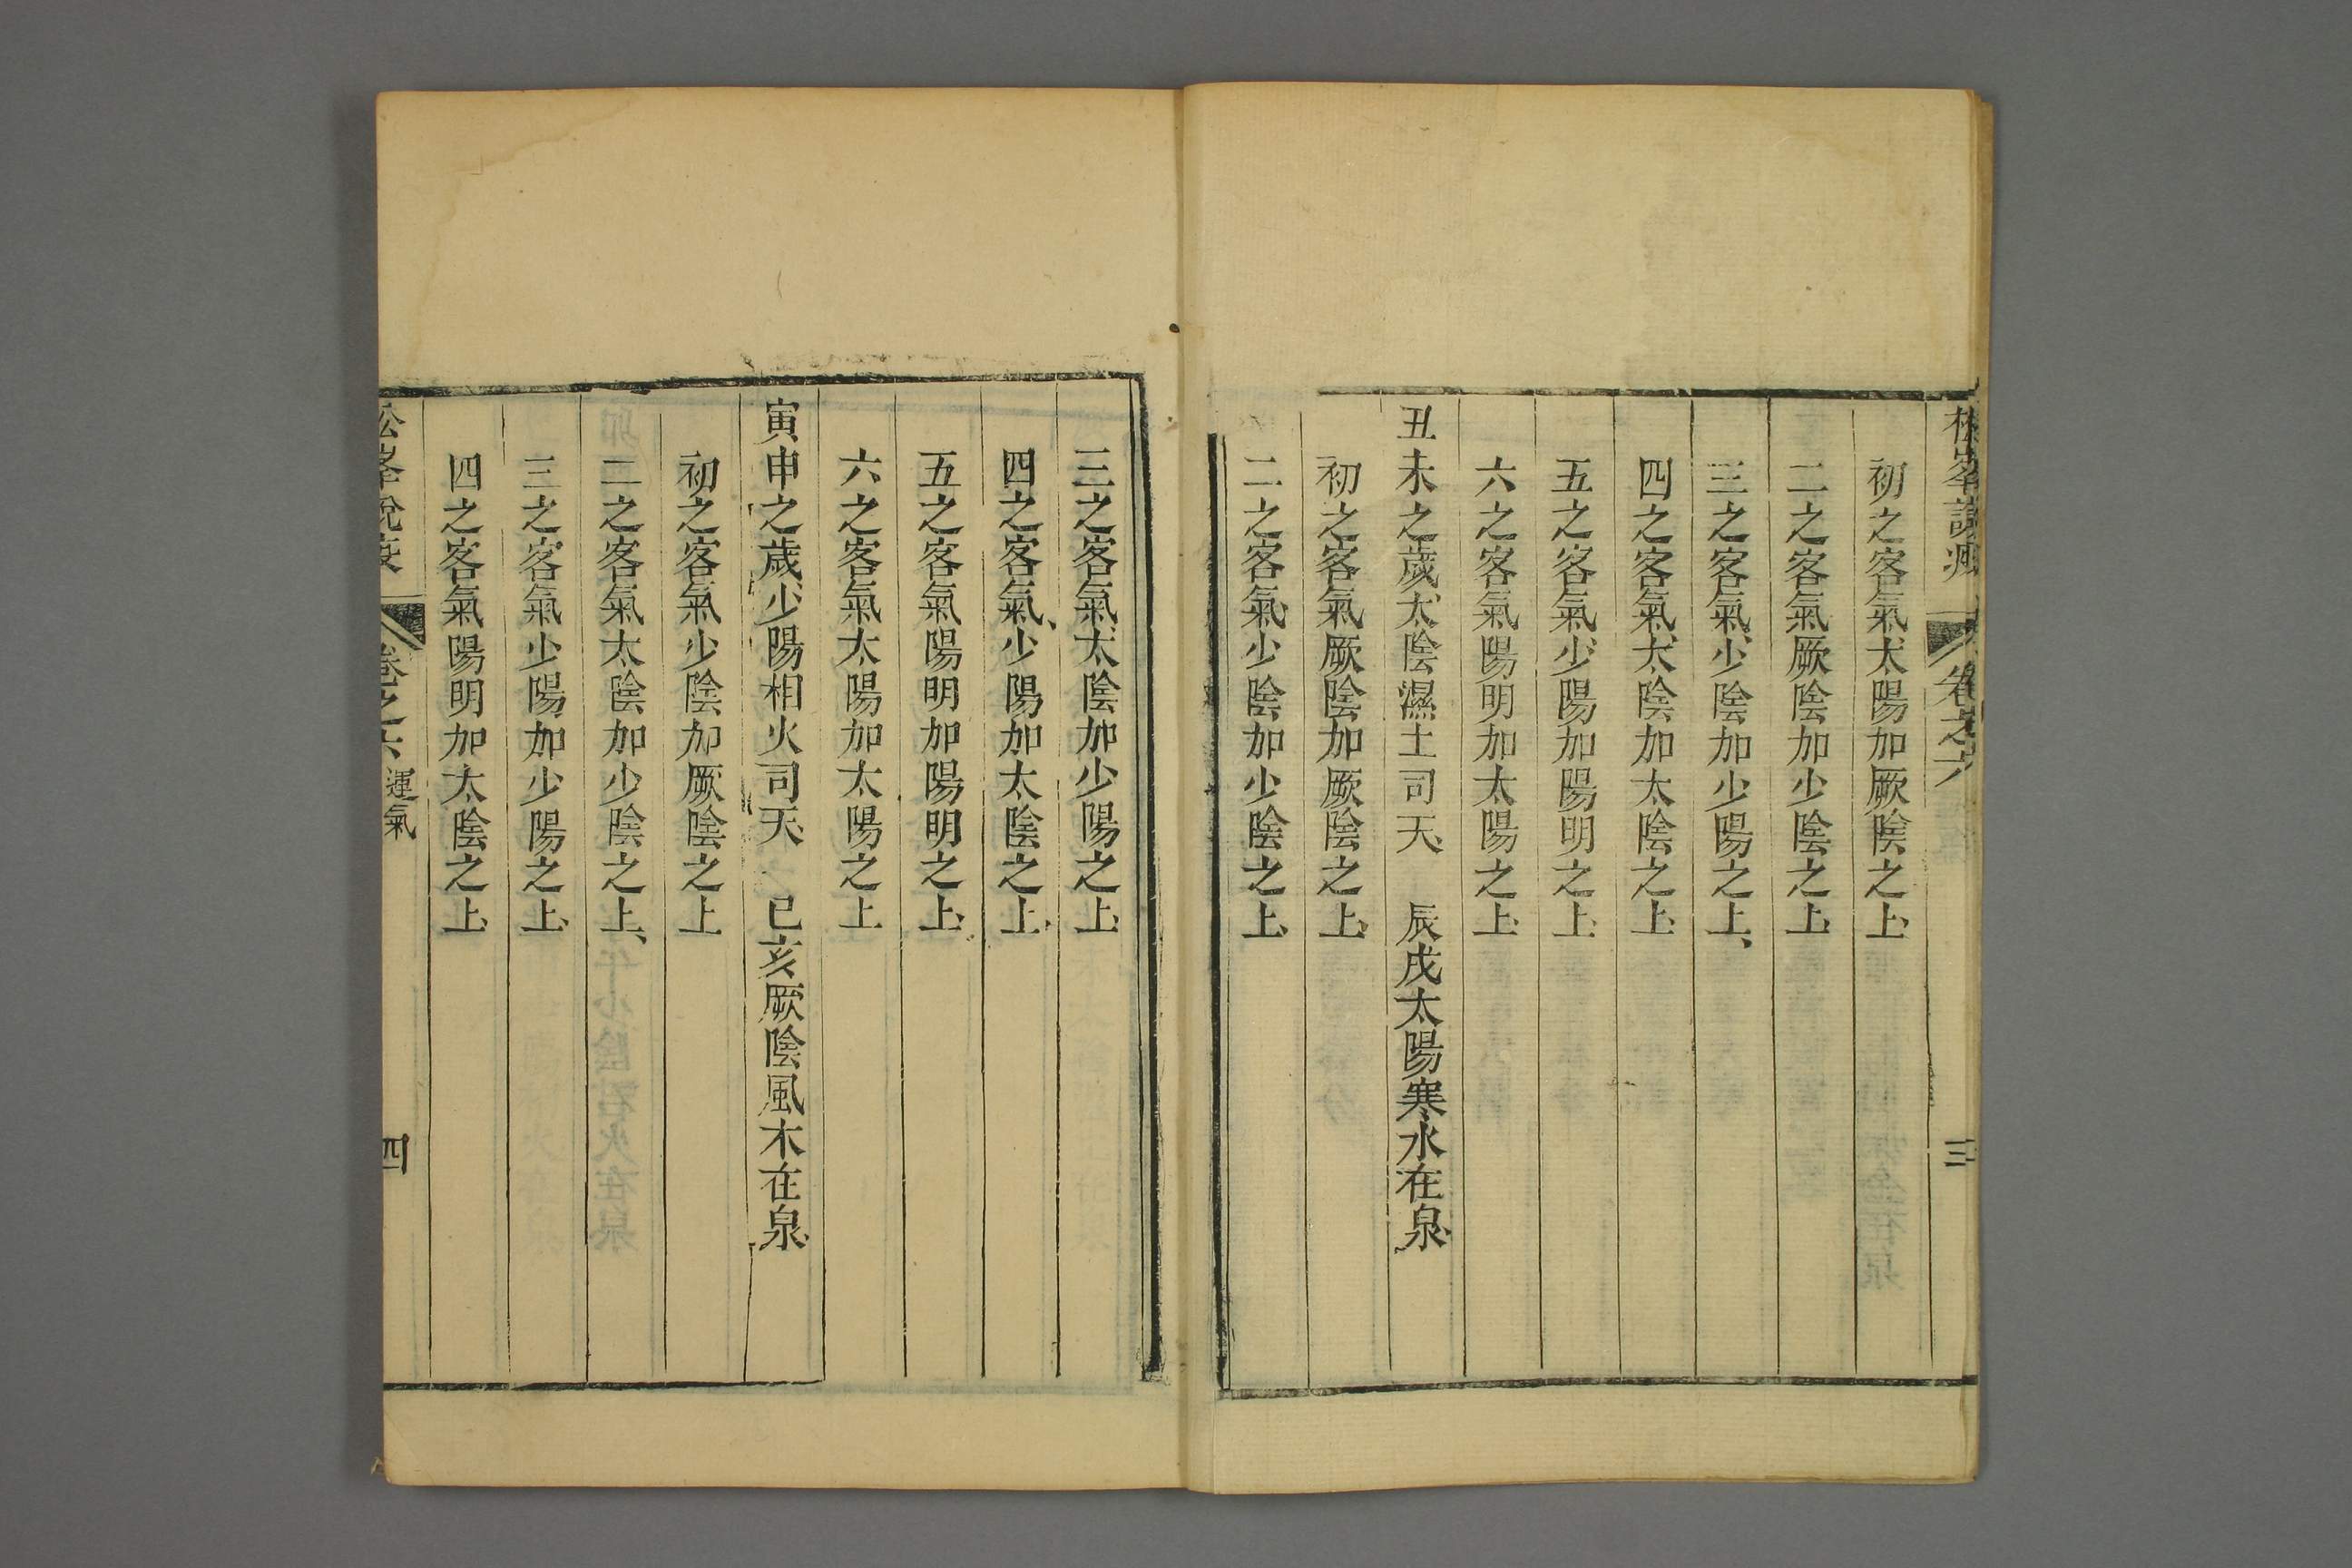 松峯說疫 卷之六 三
初之客氣太陽加厥陰之上、
二之客氣厥陰加少陰之上、
三之客氣、少陰加少陽之上、
四之客氣、太陰加太陰之上、
五之客氣、少陽加陽明之上、
六之客氣陽明加太陽之上、
丑未之歲、太陰濕土司天、 辰戌太陽寒水在泉、
初之客氣厥陰加厥陰之上、
二之客氣、少陰加少陰之上、
三之客氣、太陰加少陽之上、
四之客氣、少陽加太陰之上、
五之客氣陽明加陽明之上、
六之客氣太陽加太陽之上
寅申之歲、少陽相火司天、 巳亥厥陰風木在泉、
初之客氣少陰加厥陰之上
二之客氣太陰加少陰之上、
三之客氣少陽加少陽之上、
四之客氣陽明加太陰之上、
松峯說疫 卷之六 運氣 四